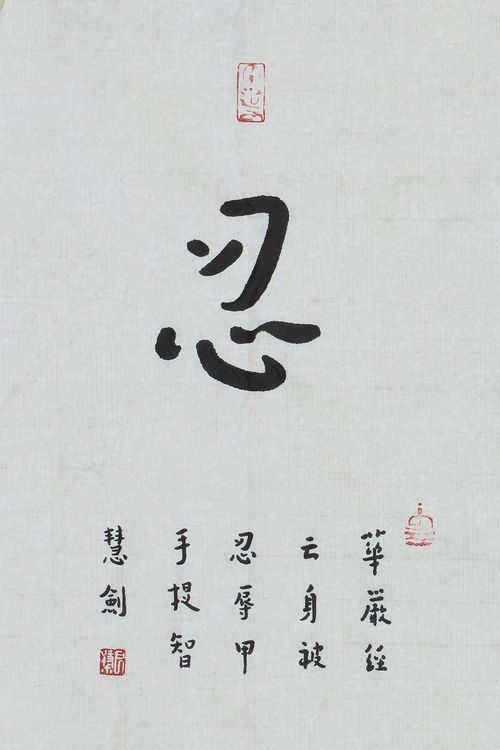 忍
華嚴經
云身被
忍辱甲
手提智
慧劍